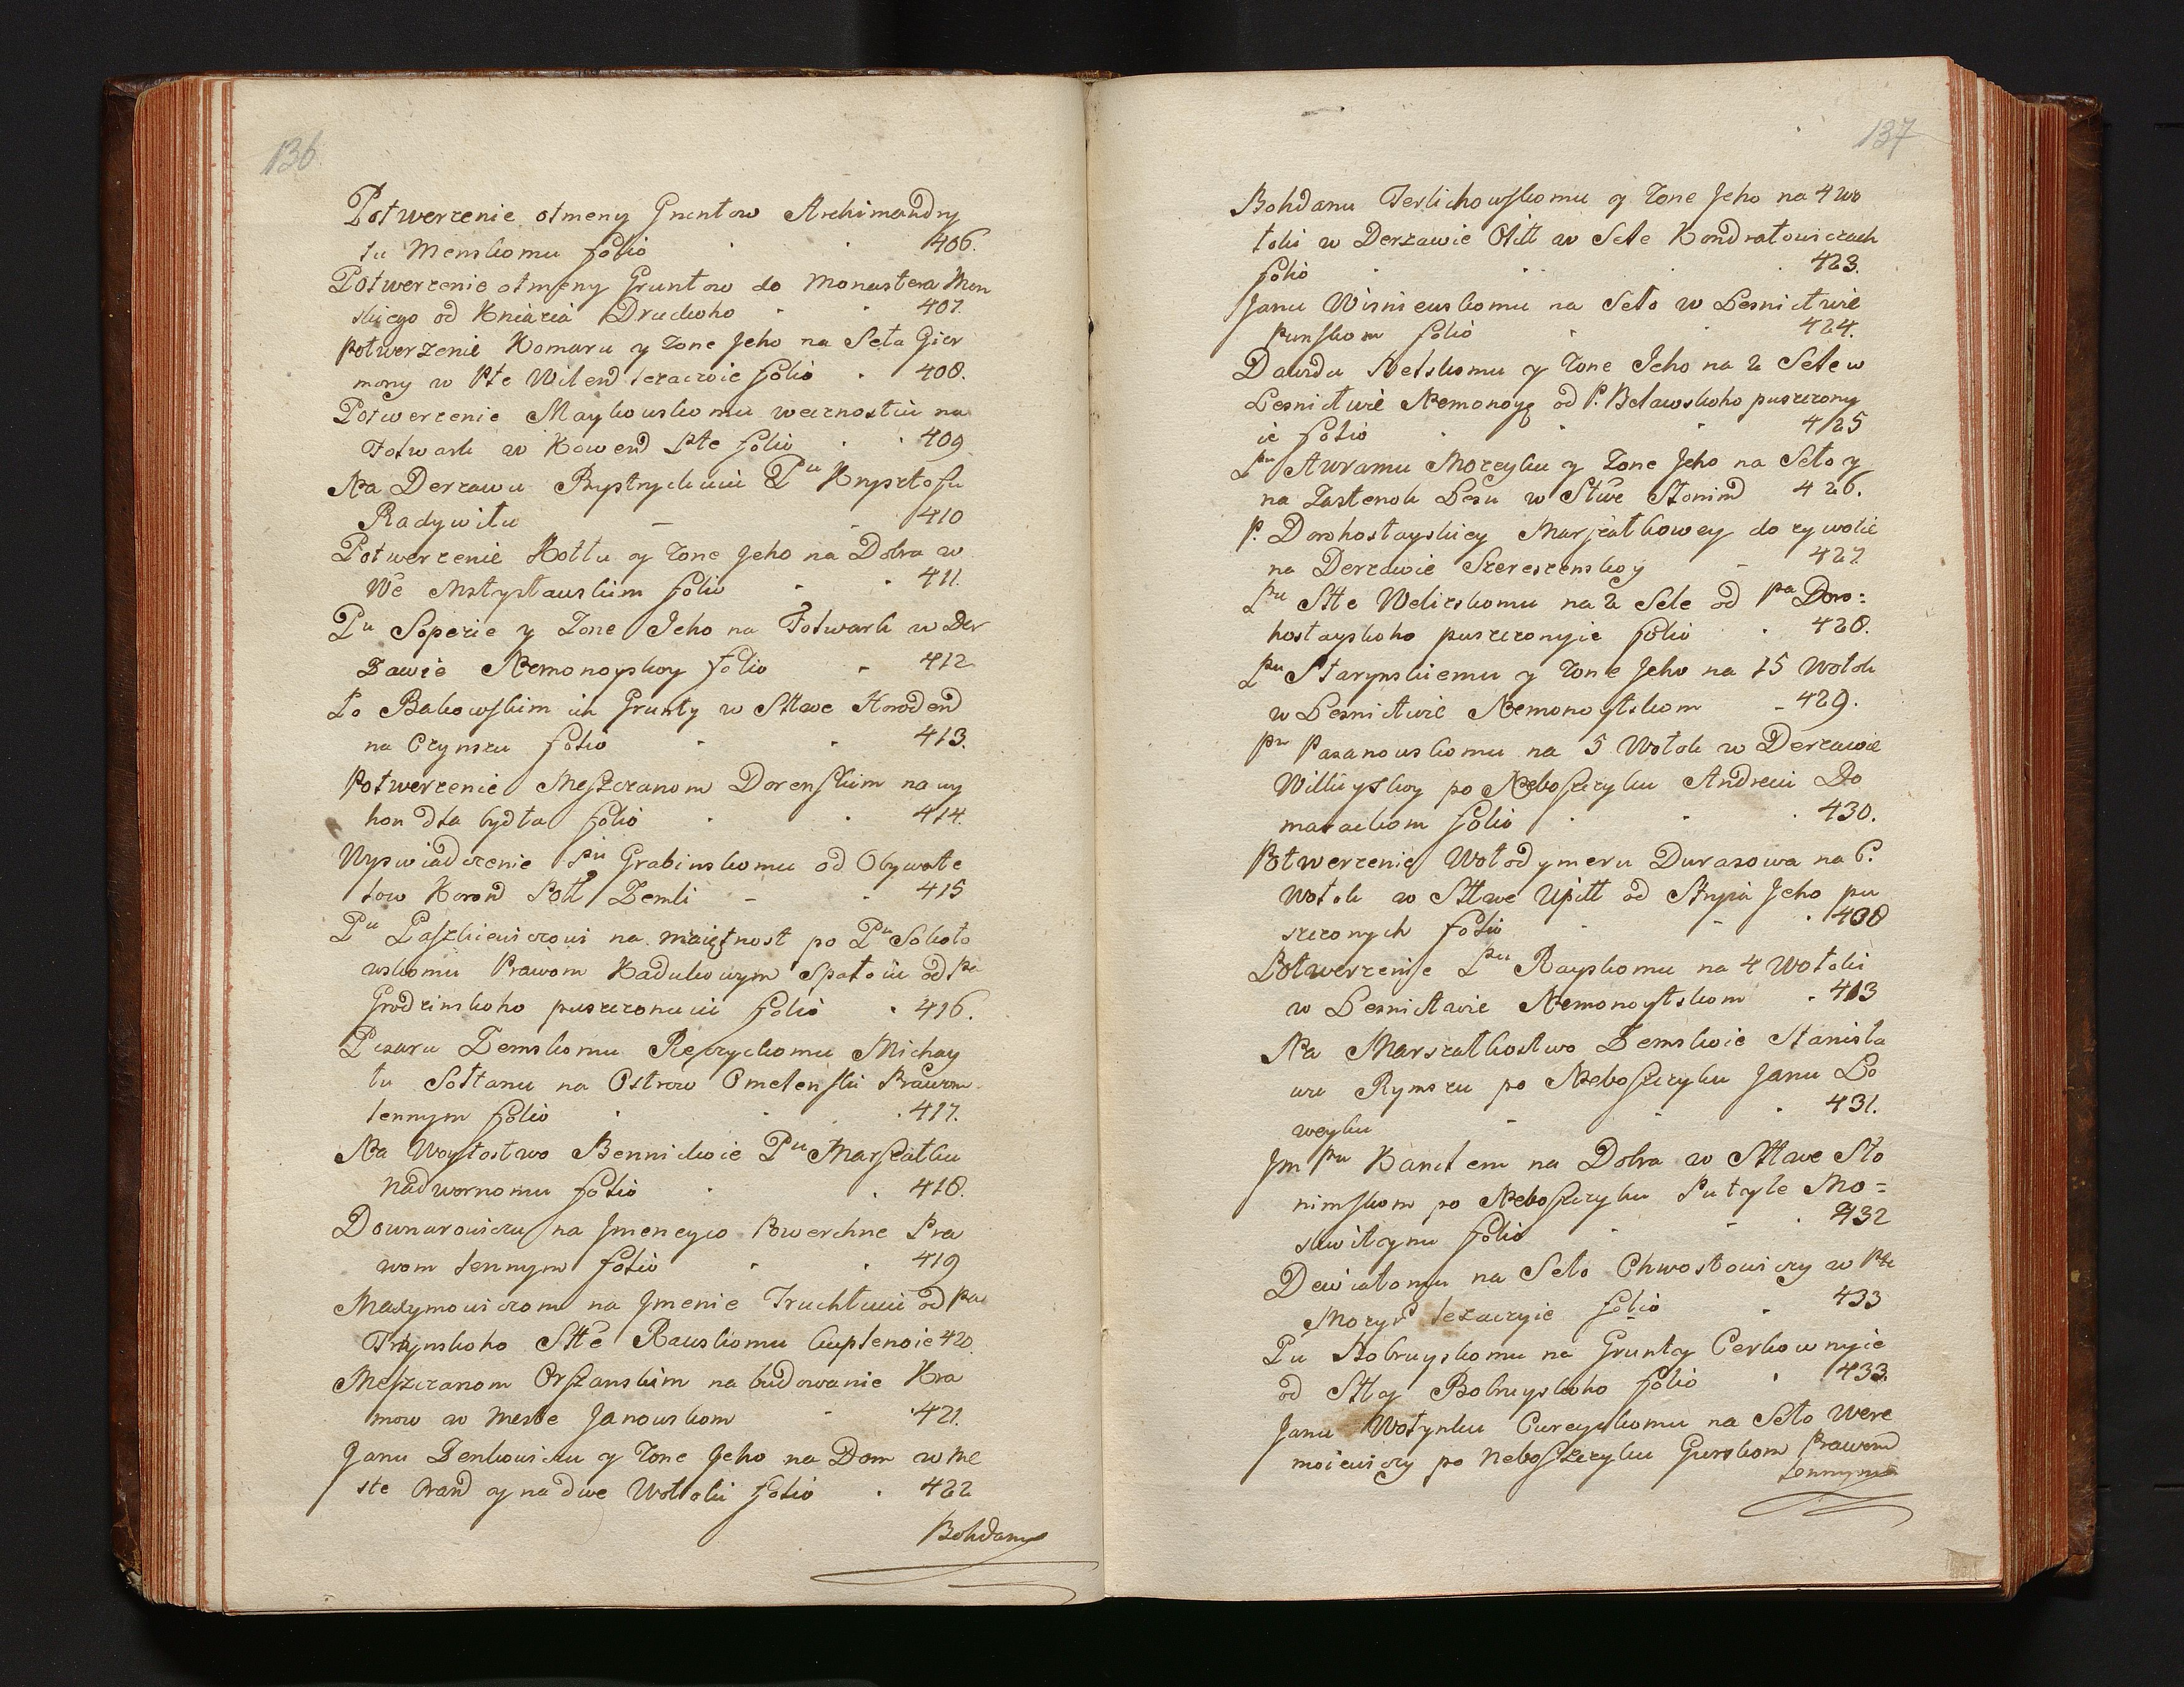 136
Potwerzenie otmeny Gruntow Archimandry
tu Menskomu folio 406.
Potwerzenie otmeny Gruntow do Monastera Men
skiego od Kniazia Druckoho 407.
Potwerzenie Komaru y Zone Jeho na Seła Gier
mony w Pte Wilend lezaczoie folio 408.
Potwerzenie Maykowskomu wecznostiu na
Fotwark w Kowend Pte folio 409
Na Derzawu Bystryckuiu Pu Krysztofu
Radywiłu 410
Potwerzenie Kottu y Zone Jeho na Dobra w
We Mstysławskim folio 411.
Pu Sopezie y Zone Jeho na Fotwark w Der
Zawie Nemonoyskoy folio 412
To Bakowskim ich Grunty w Sttwe Horodend
na Czynszu folio 413.
Potwerzenie Meszczanom Dorenskim na wy
hon dla bydła folio 414.
Wyswiadczenie Pu Grabinskomu od Obywate
low Korond Poll Zemli 415
Pu Paszkiewiczowi na maiętnost po Pu Sokoło
wskomu Prawom Kadukowym Spałoiu od Pa
Grodzinskoho puszczonuiu folio 416.
Pisaru Zemskomu Reczyckomu Michay
łu Sołtanu na Ostrow Omelenski Prawom
lennym folio 417.
Na Woytostwo Bennickoie Pu Marszałku
Nadwornomu folio 418.
Downarowiczu na Jmeneyco Powerchne Pra
wom lennym folio 419
Maxymowiczom na Jmenie Truchtuiu od Pa
Trynskoho Stte Rawskomu kuplenoie 420.
Meszczanom Orszanskim na budowanie Kra
mow w Meste Janowskom 421.
Janu Zenkowiczu y Zone Jeho na Dom w Me
ste Brand y na dwe Wołoki folio 422
Bohdanu
137
Bohdanu Terlichowskomu y Zone Jeho na 4 wo
łoki w Derzawie Olitt w Sele Kondratowiczach
folio 423.
Janu Wisniewskomu na Seło w Lesnictwie
Punskom folio 424.
Dawidu Betskomu y Zone Jeho na 2 Sele w
Lesnictwie Nemonoyę od P. Beławskoho puszczony
ie folio 425
Pu Awramu Mozeyku y Zone Jeho na Seło y
na Zastenok Lesu w Sttwe Słonimd 426.
P. Dorohostayskiey Marszałkowey do zywotie
na Derzawie Szereszenskoy 427.
Pu Stte Weliczkomu na 2 Sele od Pa Doro:
hostayskoho puszczonyie folio 428.
Pu Starynskiemu y Zone Jeho na 15 Wołok
w Lesnictwie Nemonoytskom 429.
Pu Pazanowskomu na 5 Wołok w Derzawie
Willuyskoy po Neboszczyku Andreiu Do
marackom folio 430.
Potwerzenie Wołodymeru Durasowa na 6.
Wołok w Sttwe Upitt od Stryia Jeho pu
szczonych folio 438
Potwerzenie Pu Rayskomu na 4 Wołoki
w Lesnictwie Nemonoytskom 413
Na Marszałkostwo Zemskoie Stanisła
wu Rymszu po Neboszczyku Janu Lo
weyku 431.
Jm Pu Kanclem na Dobra w Sttwe Sło
nimskom po Neboszczyku Putyle Mo=
skwitynu folio 432
Dewiatomu na Seło Chwostowiczy w Pte
Mozyr lezaczyie folio 433
Pu Stobruyskomu na Grunty Cerkownyie
od Stty Bobruyskoho folio 433.
Janu Wołynku Cureyskomu na Seło Were
moiewiczy po Neboszczyku Gurskom Prawom
Lennym